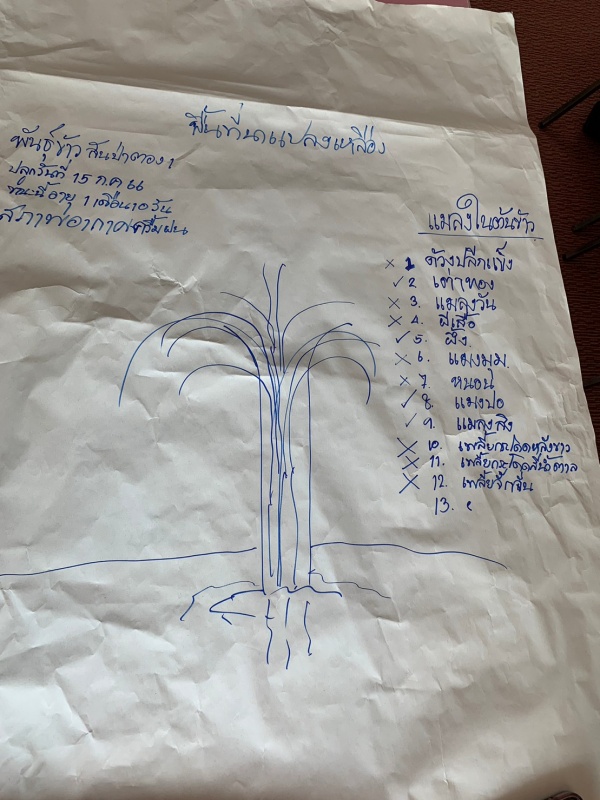 พื้นที่นาแปลงเหลือง
พันธุ์ข้าว สันป่าตอง 1
ปลูกวันที่ 15 ก.ค 66
ขณะนี้อายุ 1 เดือน 10 วัน
สภาพอากาศครึ้มฝน
แมลงในต้นข้าว
× 1 ด้วงปีกแข็ง
✓ 2 เต่าทอง
× 3. แมลงวัน
× 4. ผีเสื้อ
✓ 5. ผึ้ง.
× 6. แมงมุม.
× 7. หนอน
✓ 8. แมงปอ
✓ 9. แมลงสิง
× 10. เพลี้ยกระโดดหลังขาว
× 11. เพลี้ยกระโดดสีน้ำตาล
× 12. เพลี้ยจักจั่น
13.